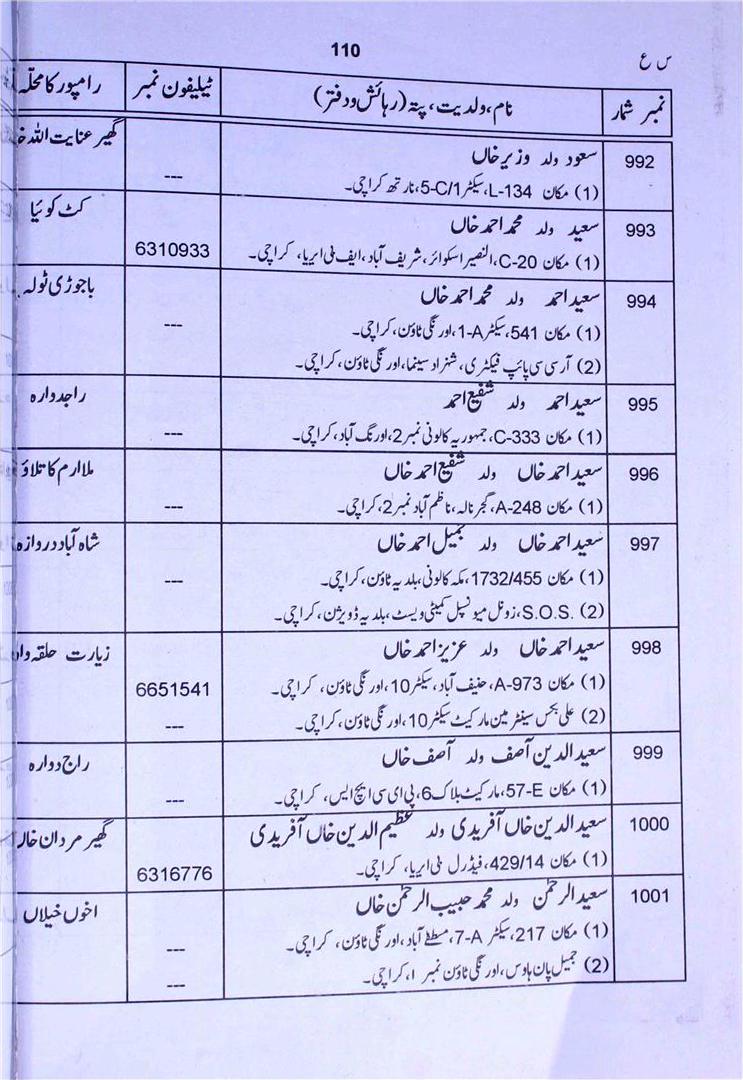 110
س ع
نمبر شمار	نام، ولدیت، پتہ (رہائش ودفتر)	ٹیلیفون نمبر	رامپور کا محلّہ
992	سعود ولد وزیر خاں		گھیر عنایت اللہ
(1) مکان L-134، سیکٹر 5-C/1، نارتھ کراچی۔	---
993	سعید ولد محمد احمد خاں		کٹ کوئیا
(1) مکان C-20، النصیر اسکوائر، شریف آباد، ایف بی ایریا، کراچی۔	6310933
994	سعید احمد ولد محمد احمد خاں		باجوڑی ٹولہ
(1) مکان 541، سیکٹر 1-A، اورنگی ٹاؤن، کراچی۔	---
(2) آر سی سی پائپ فیکٹری، شہزاد سینما، اورنگی ٹاؤن، کراچی۔
995	سعید احمد ولد شفیع احمد		راجدوارہ
(1) مکان C-333، جمہوریہ کالونی نمبر 2، اورنگ آباد، کراچی۔	---
996	سعید احمد خاں ولد شفیع احمد خاں		ملا ارم کا تلاؤ
(1) مکان A-248، گجر نالہ، ناظم آباد نمبر 2، کراچی۔	---
997	سعید احمد خاں ولد جمیل احمد خاں		شاہ آباد دروازہ
(1) مکان 1732/455، مکہ کالونی، بلدیہ ٹاؤن، کراچی۔	---
(2) S.O.S.، زونل میونسپل کمیٹی ویسٹ، بلدیہ ڈویژن، کراچی۔
998	سعید احمد خاں ولد عزیز احمد خاں		زیارت حلقہ
(1) مکان A-973، حنیف آباد، سیکٹر 10، اورنگی ٹاؤن، کراچی۔	6651541
(2) علی بخس سینٹر مین مارکیٹ سیکٹر 10، اورنگی ٹاؤن، کراچی۔	---
999	سعید الدین آصف ولد آصف خاں		راج دوارہ
(1) مکان 57-E، مارکیٹ بلاک 6، پی ای سی ایچ ایس، کراچی۔	---
1000	سعید الدین خاں آفریدی ولد عظیم الدین خاں آفریدی		گھیر مردان
(1) مکان 429/14، فیڈرل بی ایریا، کراچی۔	6316776
1001	سعید الرحمٰن ولد محمد حبیب الرحمٰن خاں		اخوں خیلاں
(1) مکان 217، سیکٹر 7-A، مصطفےٰ آباد، اورنگی ٹاؤن، کراچی۔	---
(2) جمیل پان ہاوس، اورنگی ٹاؤن نمبر ۱، کراچی۔	---